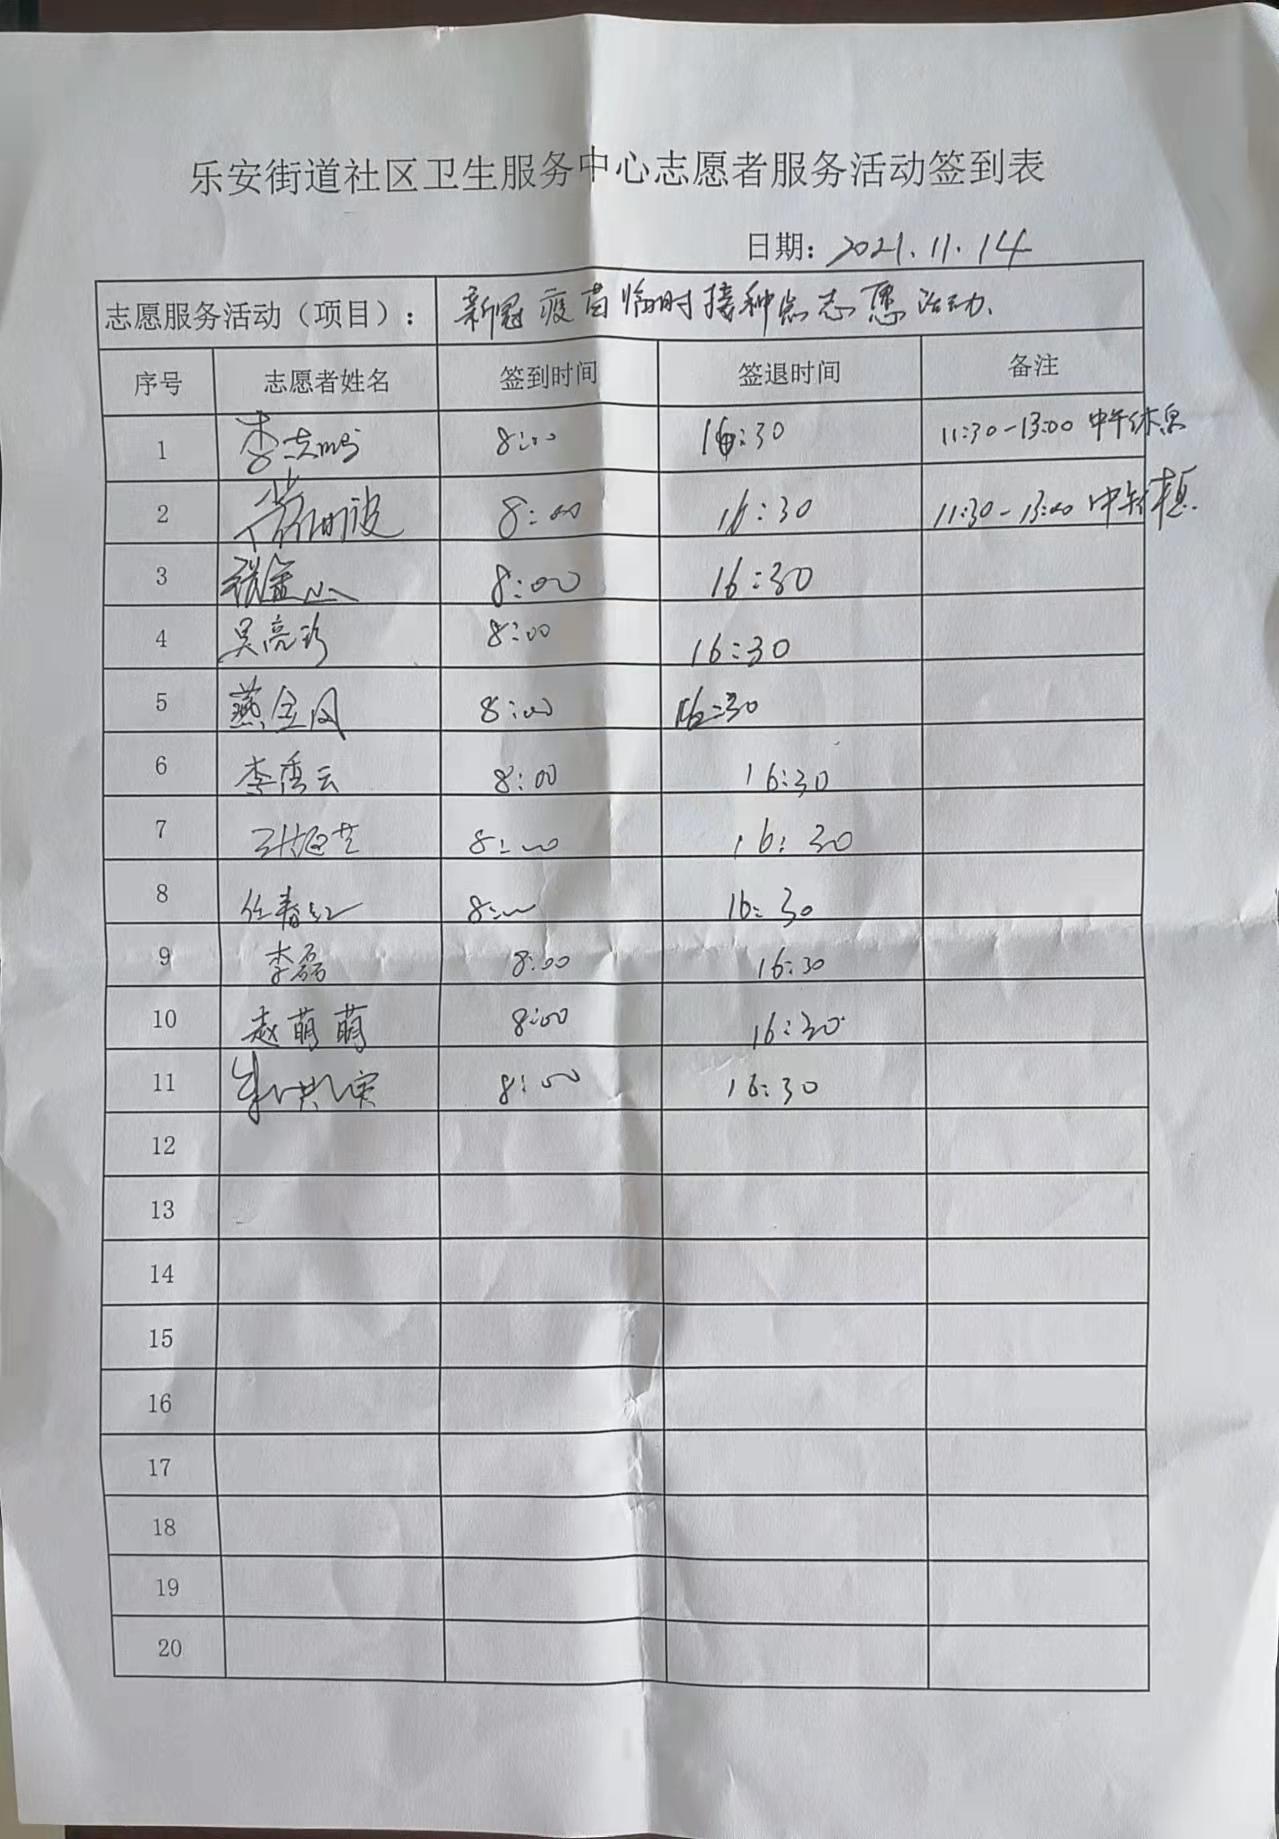 乐安街道社区卫生服务中心志愿者服务活动签到表
日期：2021.11.14
志愿服务活动（项目）： 新冠疫苗临时接种点志愿活动.
序号 志愿者姓名 签到时间 签退时间 备注
1 8:00 16:30 11:30-13:00 中午休息
2 8:00 16:30 11:30-13:00 中午休息.
3 8:00 16:30
4 吴亮珍 8:00 16:30
5 燕金凤 8:00 16:30
6 李秀云 8:00 16:30
7 8:00 16:30
8 任春红 8:00 16:30
9 李磊 8:00 16:30
10 赵萌萌 8:00 16:30
11 8:00 16:30
12
13
14
15
16
17
18
19
20